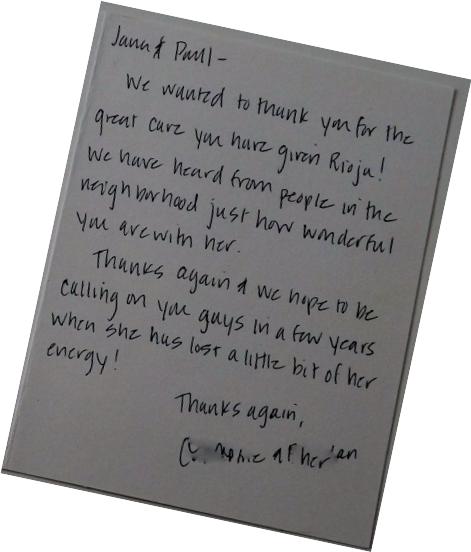 Jana & Paul -
We wanted to thank you for the
great care you have given Rioja!
We have heard from people in the
neighborhood just how wonderful
you are with her.
Thanks again & we hope to be
calling on you guys in a few years
when she has lost a little bit of her
energy!
Thanks again,